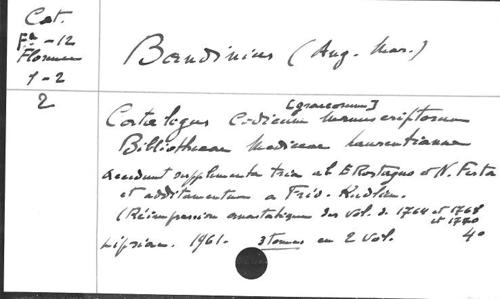 Cat.
Fa - 12
Florence
1 - 2
2
Bandinius (Ang. Mar.)
[graecorum]
Catalogus Codicum manuscriptorum
Bibliothecae Mediceae Laurentianae
accedunt supplementa tria ab E Rostagno et N. Festa
et additamentum a Frid. Kudlien.
(Réimpression anastatique des vol. d. 1764 et 1768
et 1770
Lipsiae. 1961. 3 tomes en 2 vol. 4º